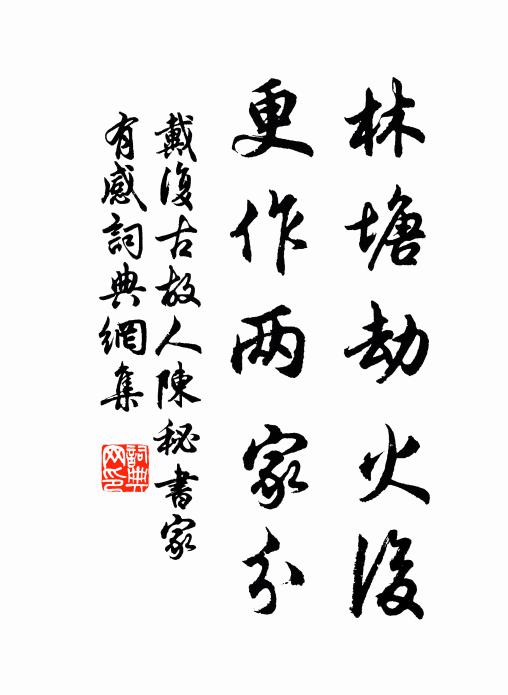 林塘劫火後
更作两家分
戴復古故人陳秘書家
有感詞典網集
詞典
网印